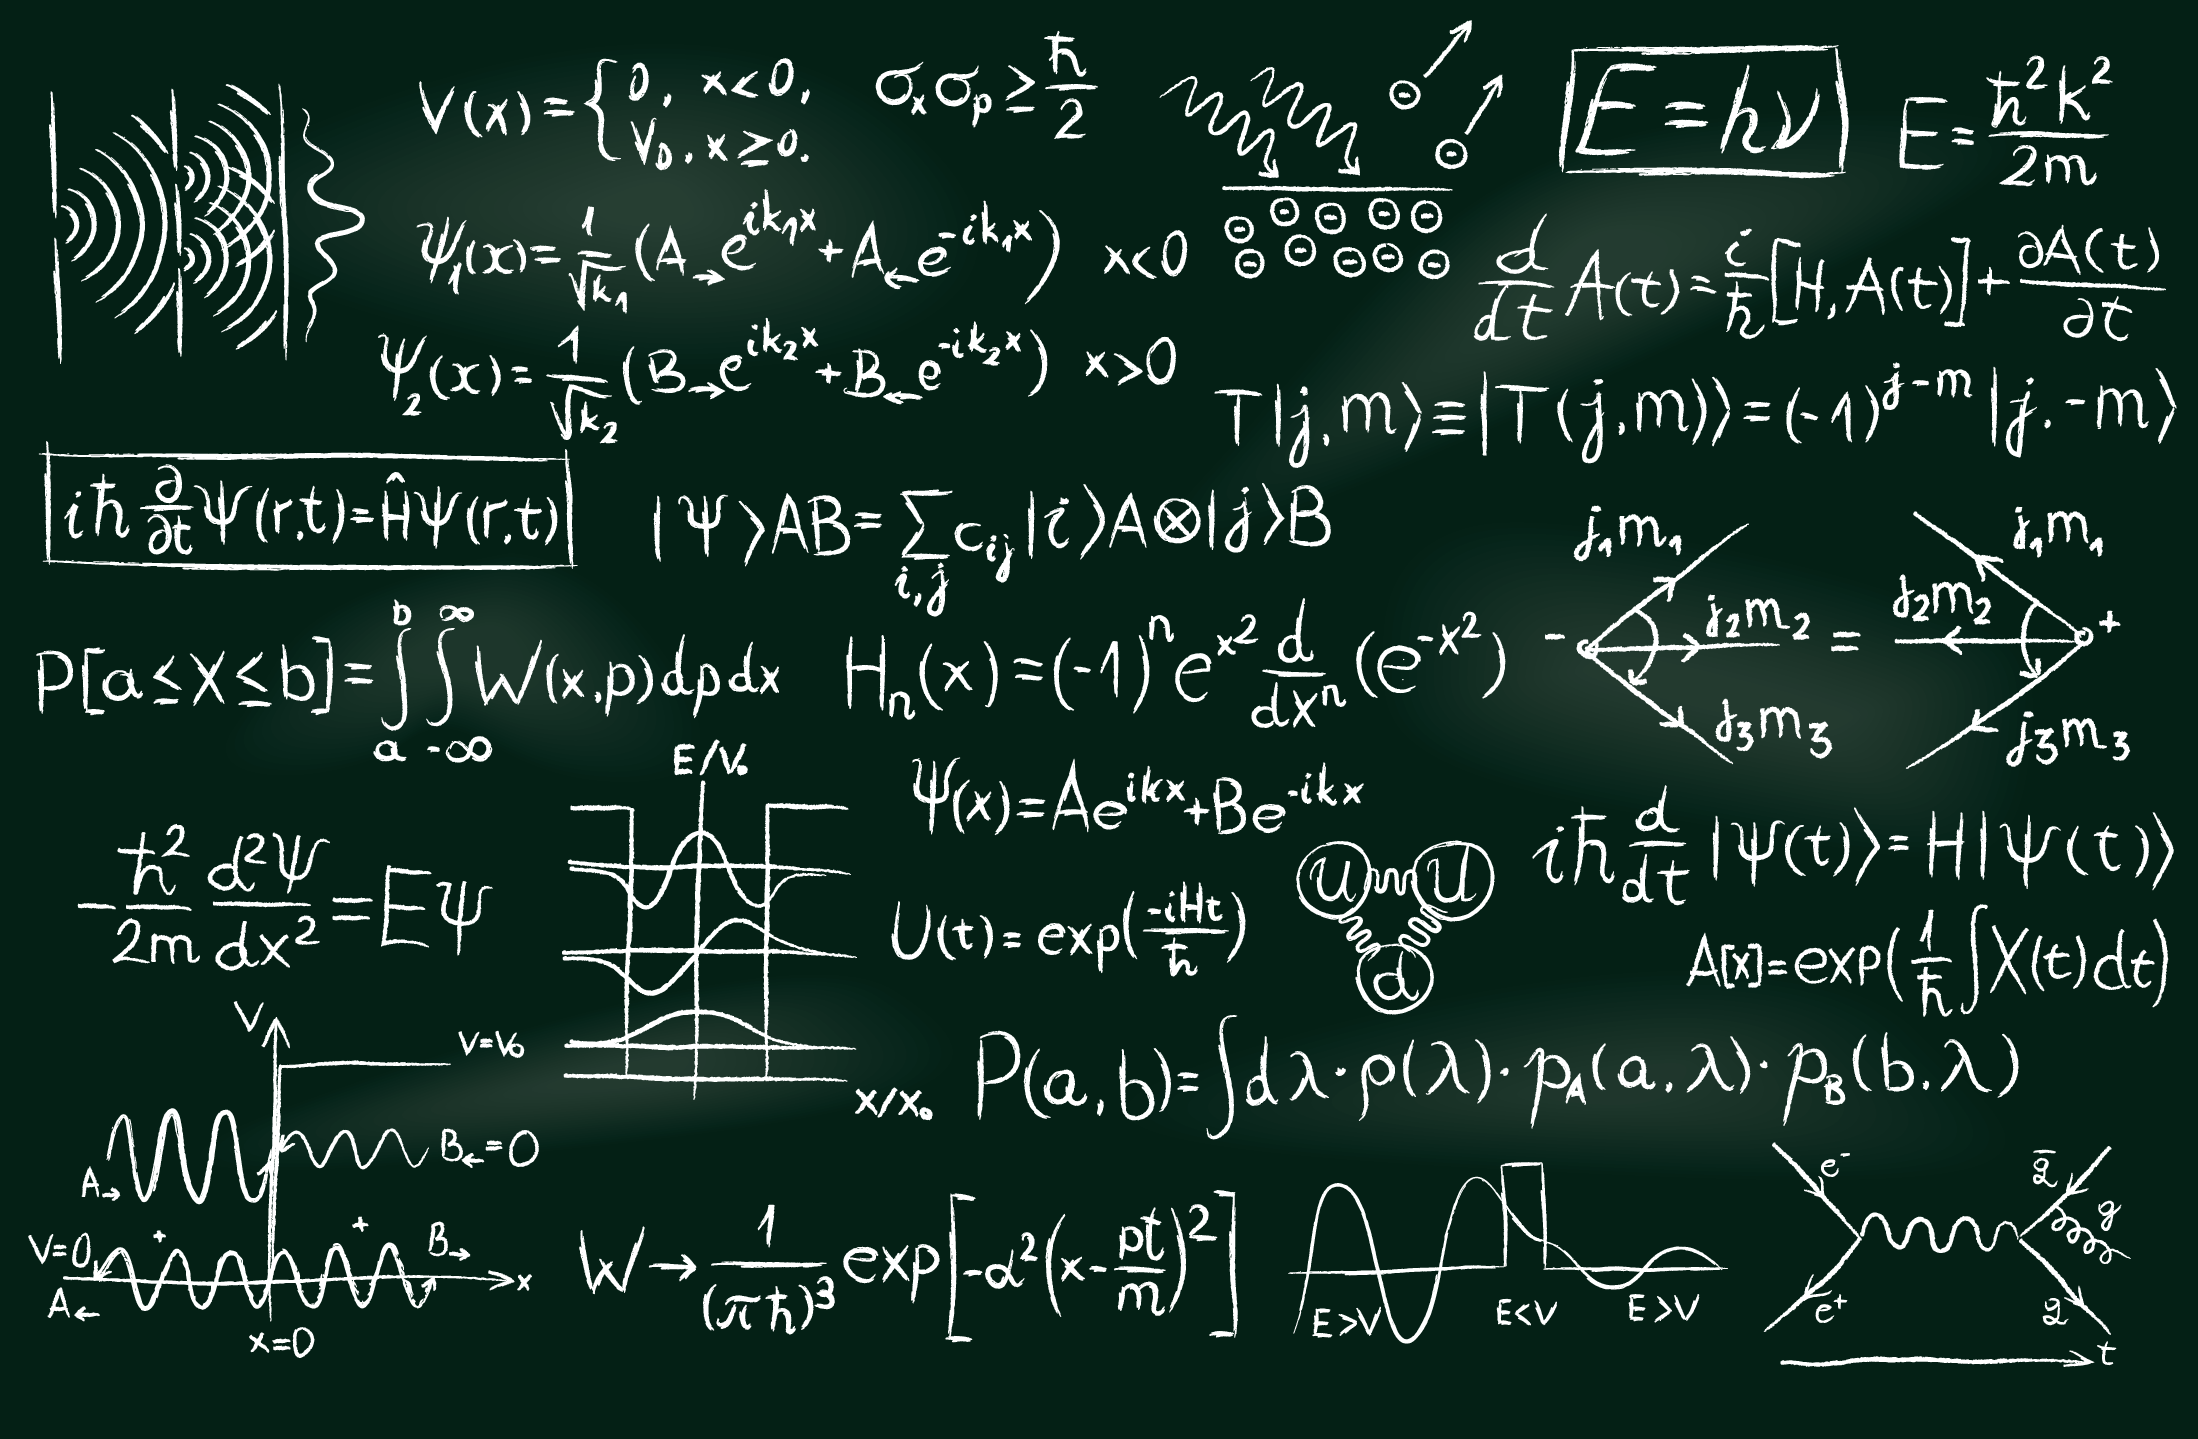 V(x) = { 0, x<0,
V₀, x≥0.
σₓσₚ ≥ ħ/2
E = hν
E = ħ²k²/2m
Ψ₁(x) = 1/√k₁ (A→e^{ik₁x} + A←e^{-ik₁x}) x<0
d/dt A(t) = i/ħ [H, A(t)] + ∂A(t)/∂t
Ψ₂(x) = 1/√k₂ (B→e^{ik₂x} + B←e^{-ik₂x}) x>0
T|j,m⟩ ≡ |T(j,m)⟩ = (-1)^{j-m} |j.-m⟩
iħ ∂/∂t Ψ(r,t) = ĤΨ(r,t)
|Ψ⟩AB = Σ_{i,j} c_{ij} |i⟩A ⊗ |j⟩B
j₁m₁ j₁m₁
- j₂m₂ = j₂m₂ +
j₃m₃ j₃m₃
P[a≤X≤b] = ∫_a^b ∫_{-∞}^∞ W(x,p)dpdx
Hₙ(x) = (-1)ⁿ e^{x²} d/dxⁿ (e^{-x²})
E/V₀
Ψ(x) = Ae^{ikx} + Be^{-ikx}
-ħ²/2m d²Ψ/dx² = EΨ
u u
d
iħ d/dt |Ψ(t)⟩ = H|Ψ(t)⟩
U(t) = exp(-iHt/ħ)
A[x] = exp(1/ħ ∫X(t)dt)
x/x₀
P(a,b) = ∫dλ·ρ(λ)·p_A(a,λ)·p_B(b,λ)
V
V=V₀
A→
B←=0
V=0
A←
+ +
B→
x
x=0
W → 1/(πħ)³ exp[-α²(x - pt/m)²]
E>V E<V E>V
e⁻ q̄
g
e⁺ q
t